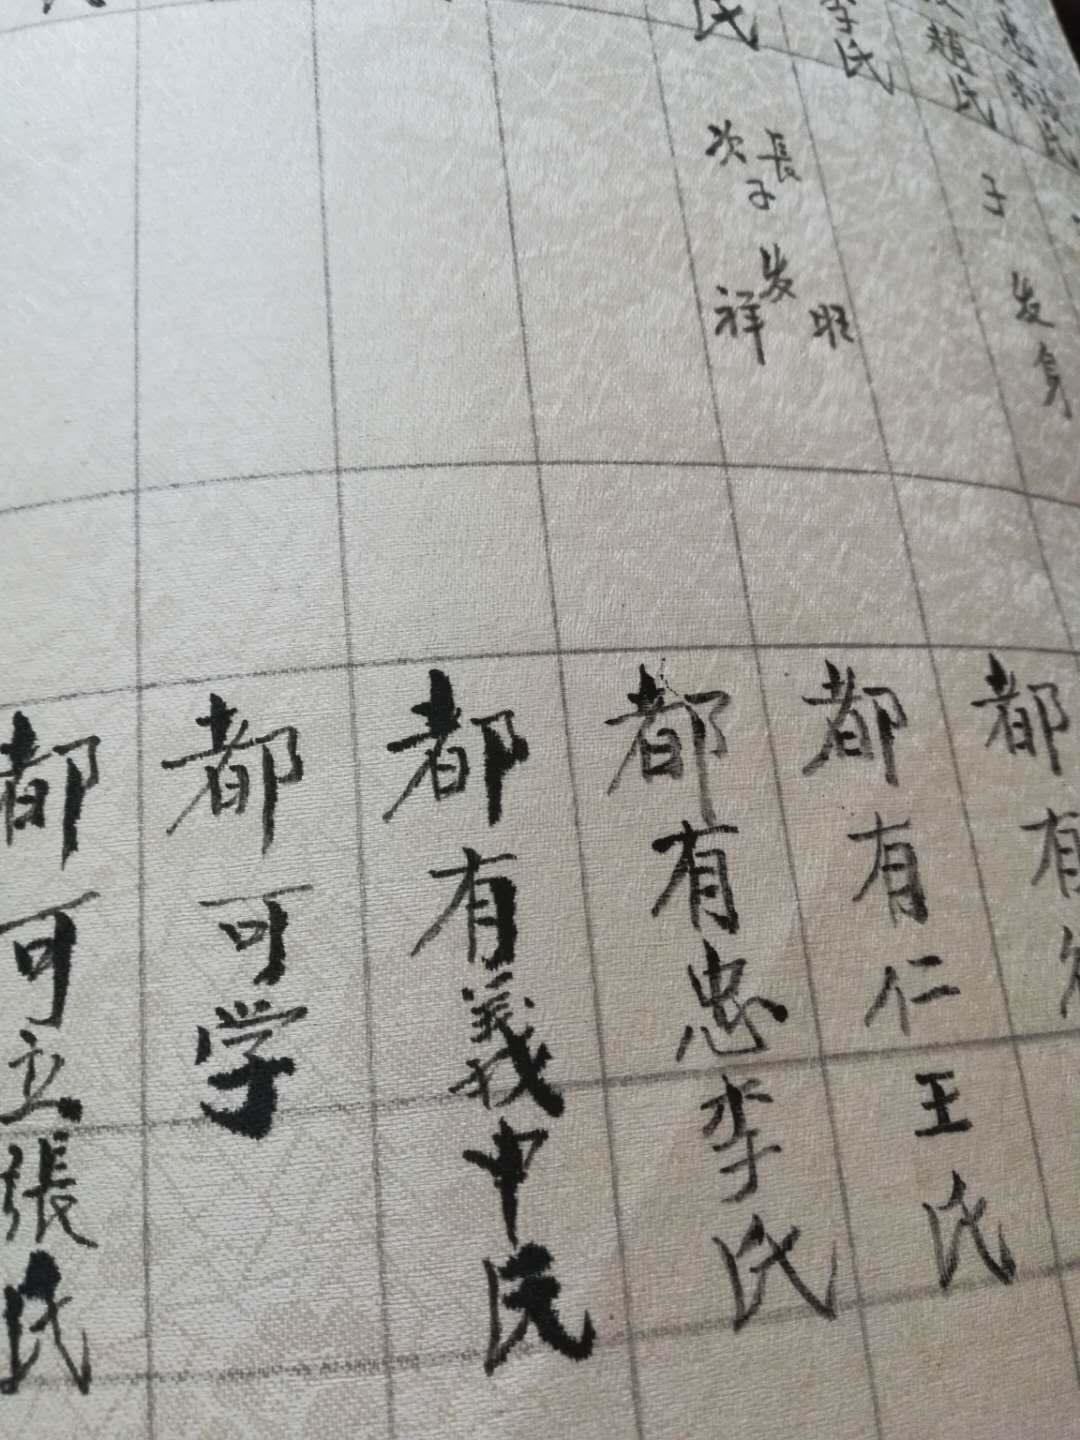 趙氏
李氏
氏
子 发
長子 发旺
次 祥
都有
都有仁王氏
都有忠李氏
都有義申氏
都可学
都可立張氏